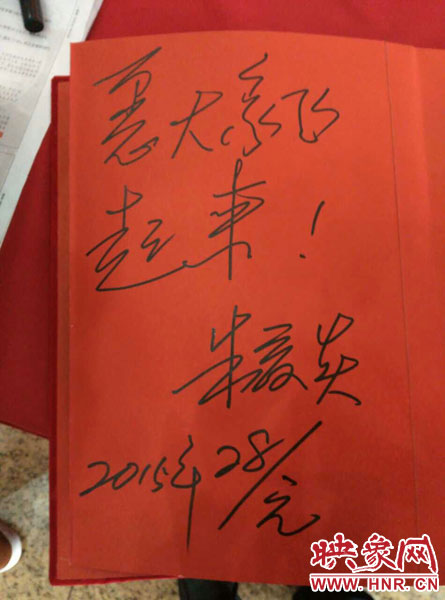 愿大象飞
起来！
朱夏炎
2015年28/元
映象网
WWW.HNR.CN